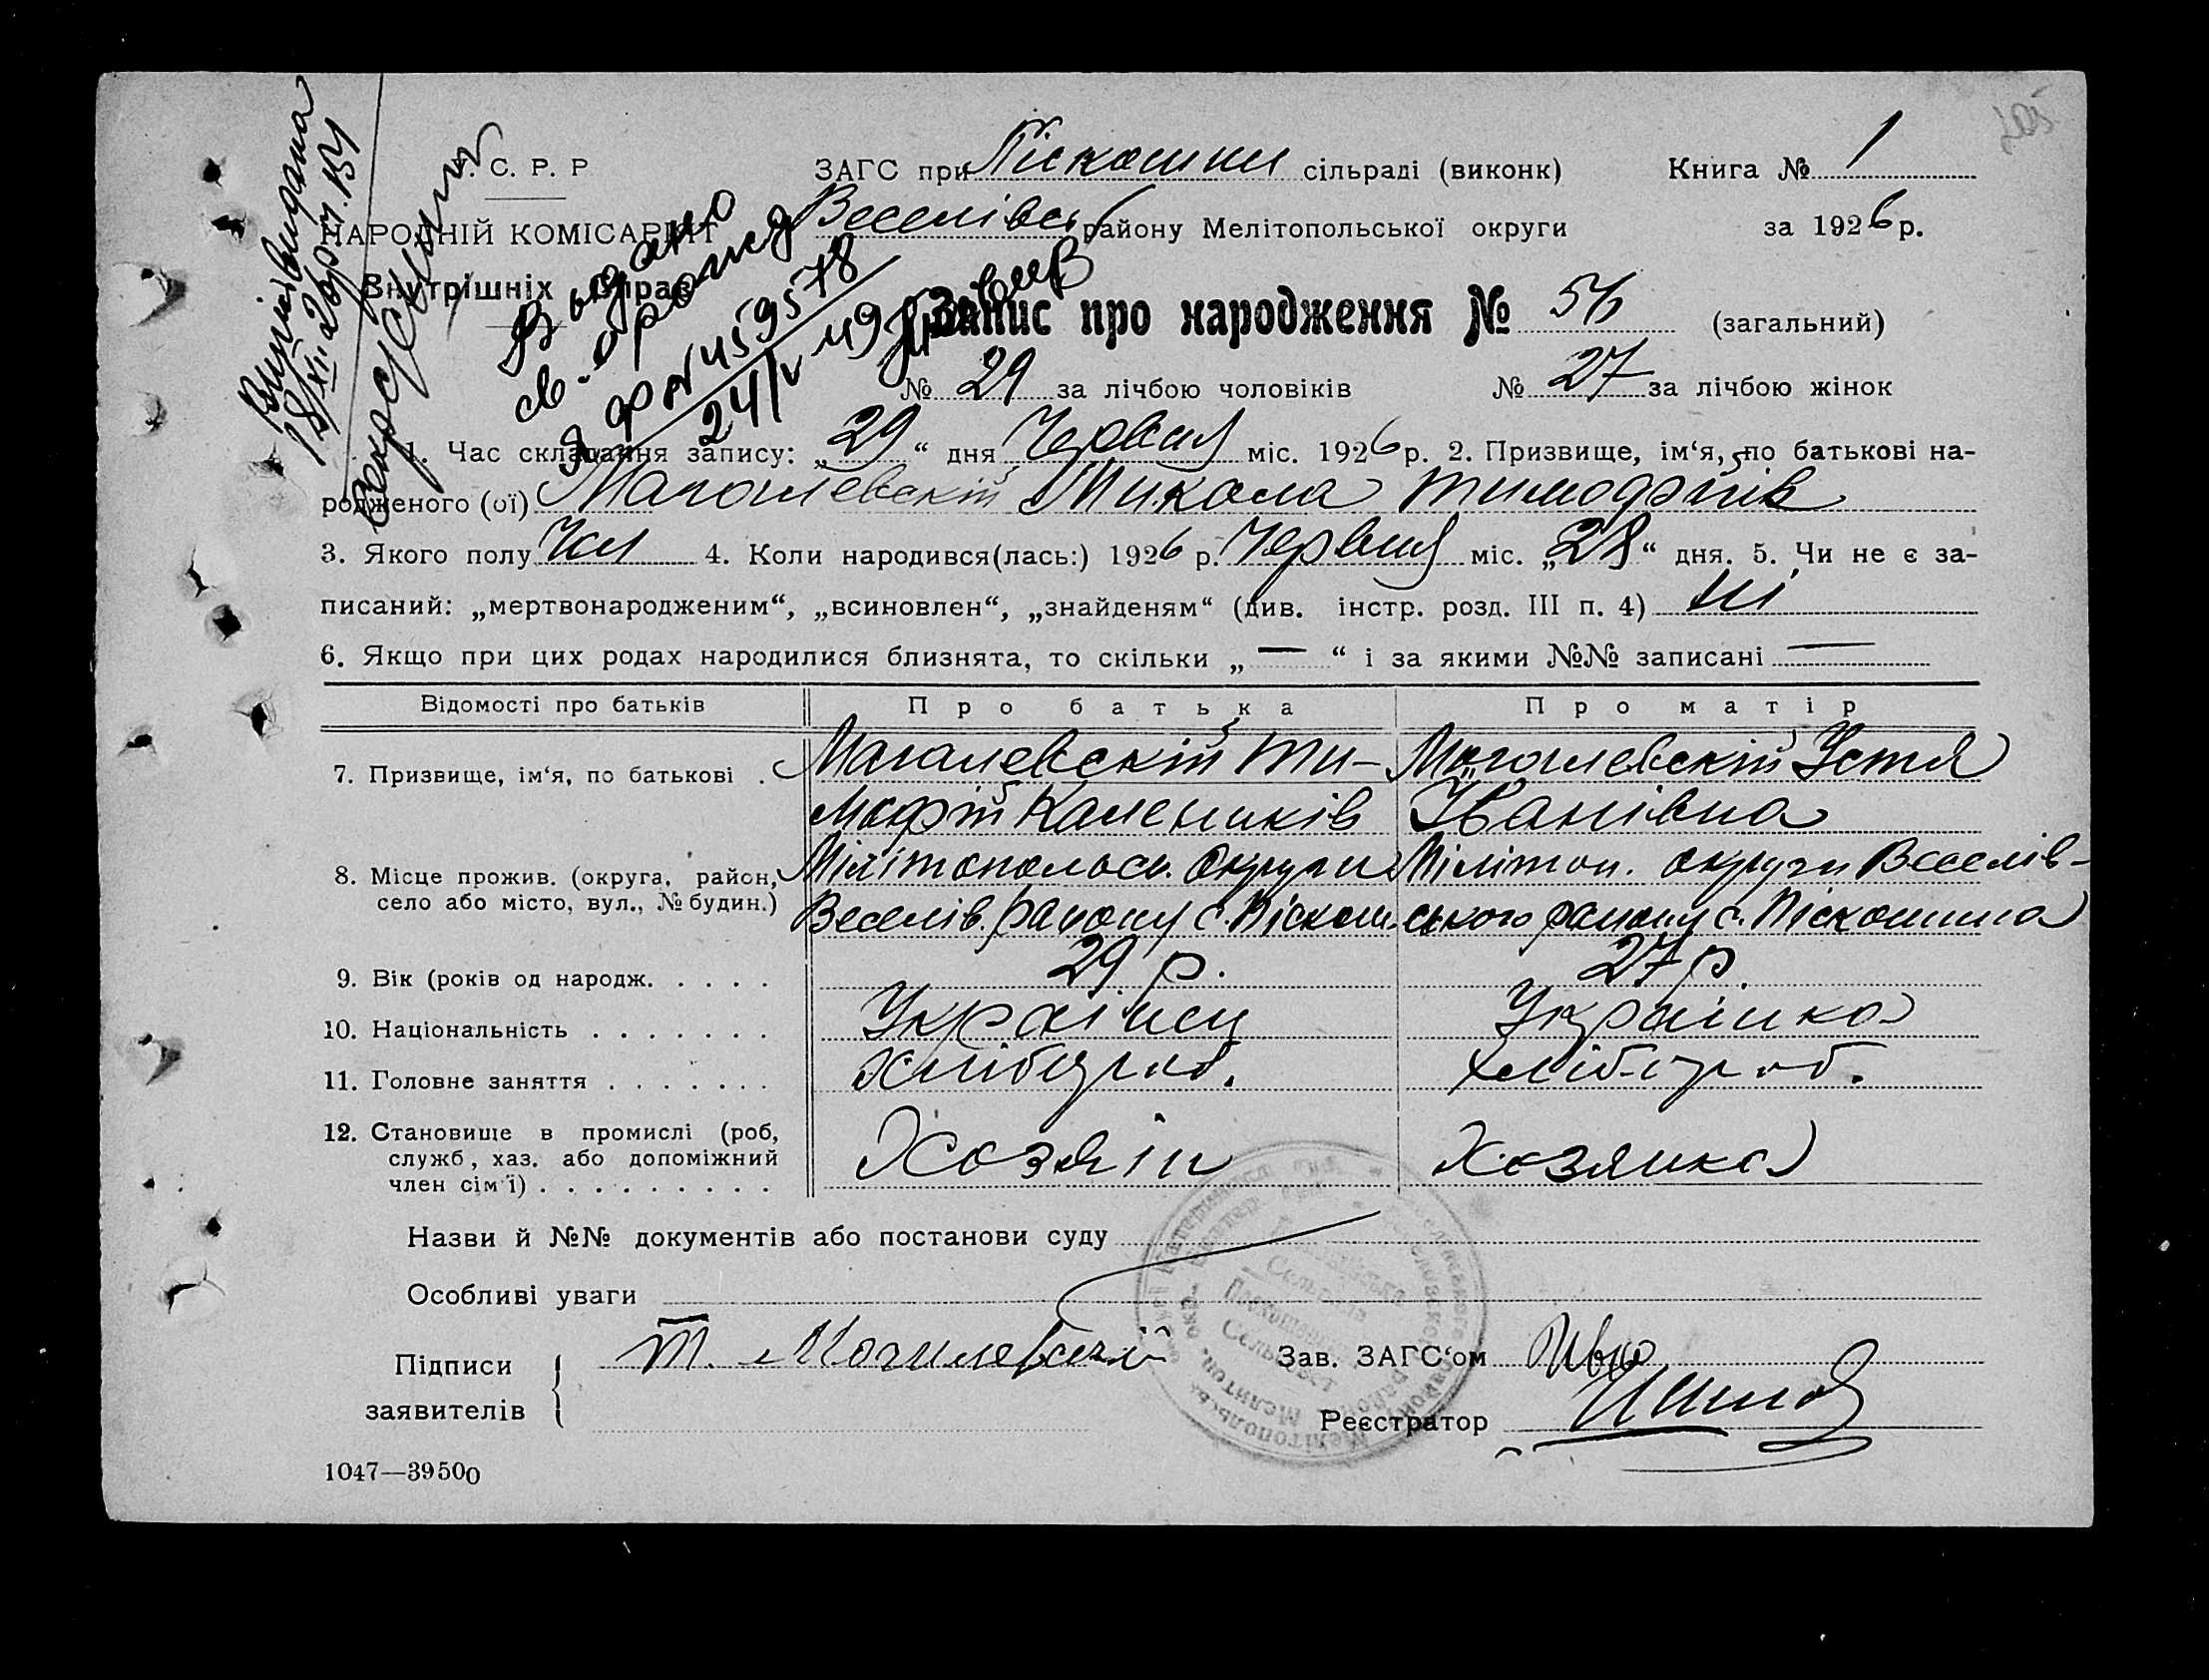 С. Р. Р
НАРОДНІЙ КОМІСАРІЯТ
Внутрішніх Справ
ЗАГС при Піскошин сільраді (виконк)
Веселівськ району Мелітопольської округи
Книга № 1
за 1926 р.
Видано
св. о рожд
№ 459578
24/V 49
Запис про народження № 56 (загальний)
№ 29 за лічбою чоловіків № 27 за лічбою жінок
1. Час складання запису: „29“ дня Червня міс. 1926 р. 2. Призвище, ім‘я, по батькові на-
родженого (ої) Магалевскій Микола Тимофіїв
3. Якого полу Чол 4. Коли народився(лась:) 1926 р. Червня міс. „28“ дня. 5. Чи не є за-
писаний: „мертвонародженим“, „всиновлен“, „знайденям“ (див. інстр. розд. III п. 4) ні
6. Якщо при цих родах народилися близнята, то скільки „—“ і за якими №№ записані —
Відомості про батьків Про батька Про матір
7. Призвище, ім‘я, по батькові . Магалевскій Ти- Магалевскій Устя
мофій Калеників Іванівна
8. Місце прожив. (округа, район, Мілітопольськ. округи Мілітоп. округи Веселів-
село або місто, вул., № будин.) Веселів. району с. Піскош. ського району с. Піскошина
9. Вік (років од народж. . . . . 29 р. 27 р.
10. Національність . . . . . . . Українец Українка
11. Головне заняття . . . . . . . Хлібороб. Хлібороб.
12. Становище в промислі (роб, Хозяін Хозяйка
служб, хаз. або допоміжний
член сім‘ї) . . . . . . . . .
Назви й №№ документів або постанови суду
Особливі уваги
Підписи
заявителів
Т. Могилевский
Зав. ЗАГС‘ом
Реєстратор
1047—39500